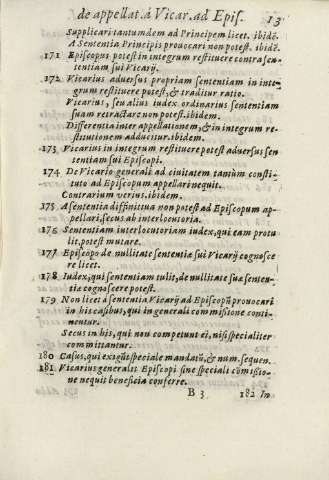 de appellat. á Vicar. ad Epis. 13
Supplicari tantumdem ad Principem licet. ibidē.
A Sententia Principis prouocari non potest. ibidē.
171 Episcopus potest in integrum restituere contra sen-
tentiam sui Vicarij.
172 Vicarius aduersus propriam sententiam in inte-
grum restituere potest, & traditur ratio.
Vicarius, seu alius iudex ordinarius sententiam
suam retractare non potest. ibidem.
Differentia inter appellationem, & in integrum re-
stitutionem adducitur. ibidem.
173 Vicarius in integrum restituere potest aduersus sen
tentiam sui Episcopi.
174 De Vicario generali ad ciuitatem tantùm consti-
tuto ad Episcopum appellari nequit.
Contrarium verius. ibidem.
175 A sententia diffinitiua non potest ad Episcopum ap-
pellari, secus ab interlocutoria.
176 Sententiam interlocutoriam iudex, qui eam protu
lit, potest mutare.
177 Episcopo de nullitate sententiæ sui Vicarij cognosce
re licet.
178 Iudex, qui sententiam tulit, de nullitate suæ senten-
tiæ cognoscere potest.
179 Non licet à sententia Vicarij ad Episcopū prouocari
in his casibus, qui in generali commissione conti-
nentur.
Secus in his, qui non competunt ei, nisi specialiter
committantur.
180 Casus, qui exigūt speciale mandatū, & num. sequen.
181 Vicarius generalis Episcopi sine speciali cōmissio-
ne nequit beneficia conferre.
B 3 182 In